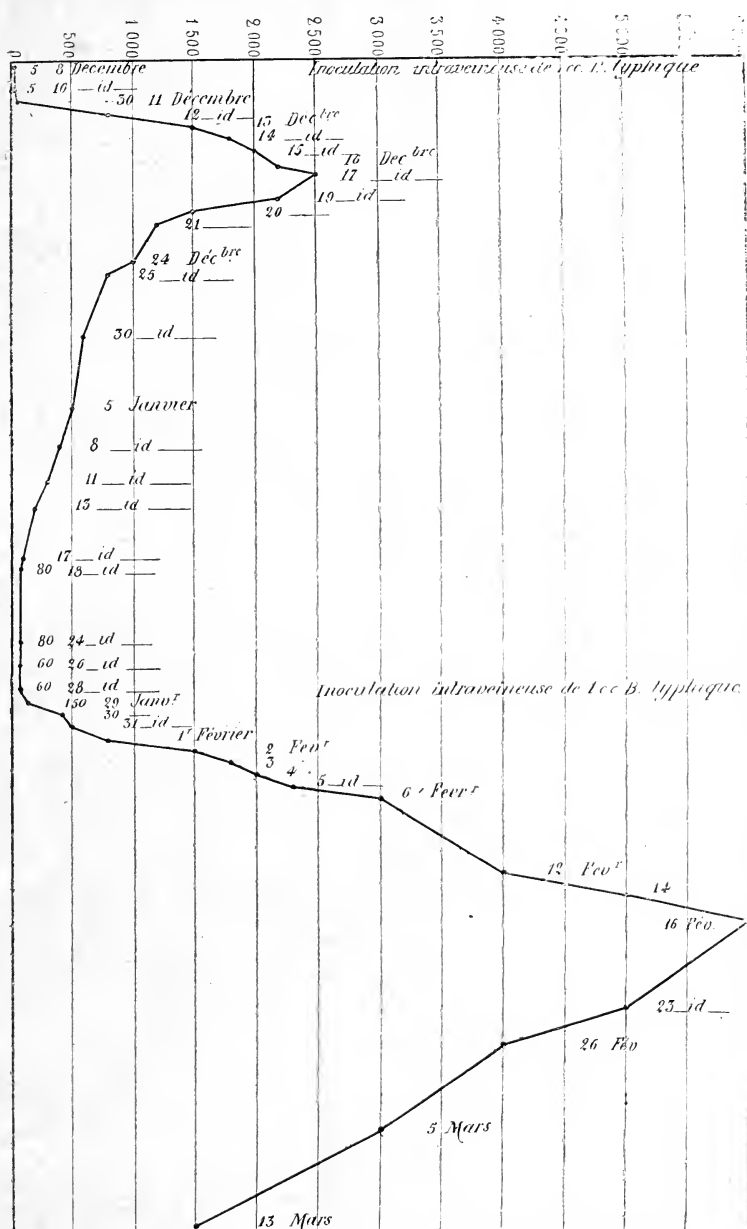 0 500 1000 1500 2000 2500 3000 3500 4000 4500 5000
5 8 Décembre
Inoculation intraveineuse de 1 cc B. typhique
5 10 _id_
30 11 Décembre
12 _id_
13 Décbre
14 _id_
15 _id_
16 Décbre
17 _id_
19 _id_
20
21
24 Décbre
25 _id_
30 _id_
5 Janvier
8 _id_
11 _id_
13 _id_
17 _id_
80 18 _id_
80 24 _id_
60 26 _id_
60 28 _id_
Inoculation intraveineuse de 1 cc B. typhique
150 29 Janvr
30
31 _id_
1r Février
2 Fevr
3
4
5 _id_
6 Fevr
12 Fevr
14
16 Fév.
23 _id_
26 Fév
5 Mars
13 Mars